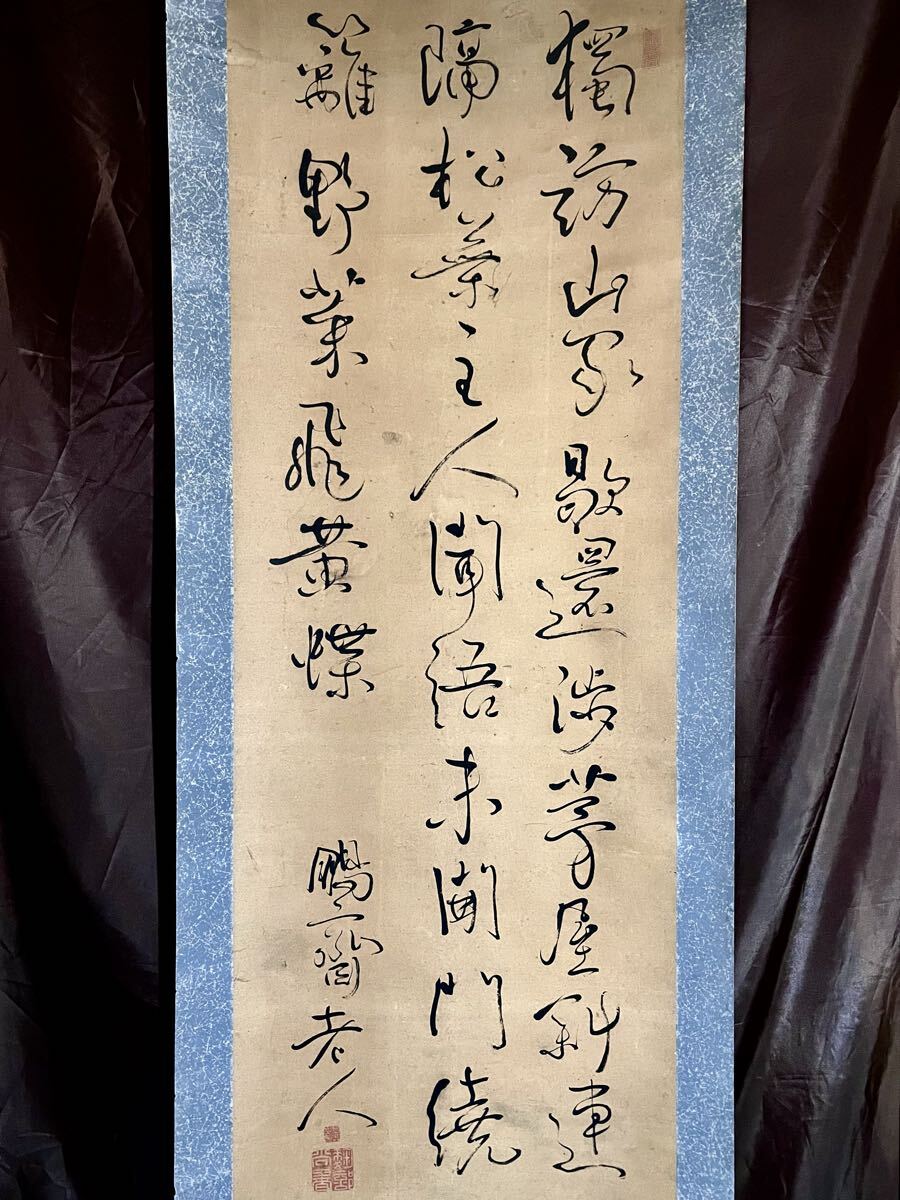 獨訪山家歇還渉茅屋斜連
隔松葉主人聞語未開門繞
籬野菜飛黄蝶
鵬齋老人